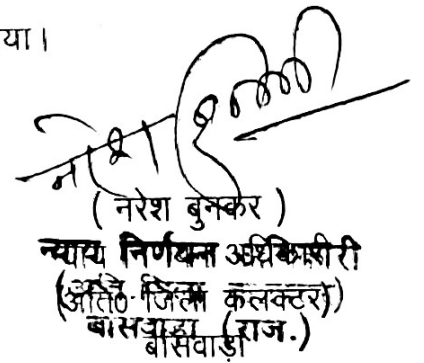 या।
नरेश
( नरेश बुनकर )
न्याय निर्णयन अधिकारी
(अति० जिला कलक्टर)
बांसवाड़ा (राज.)
बांसवाड़ा